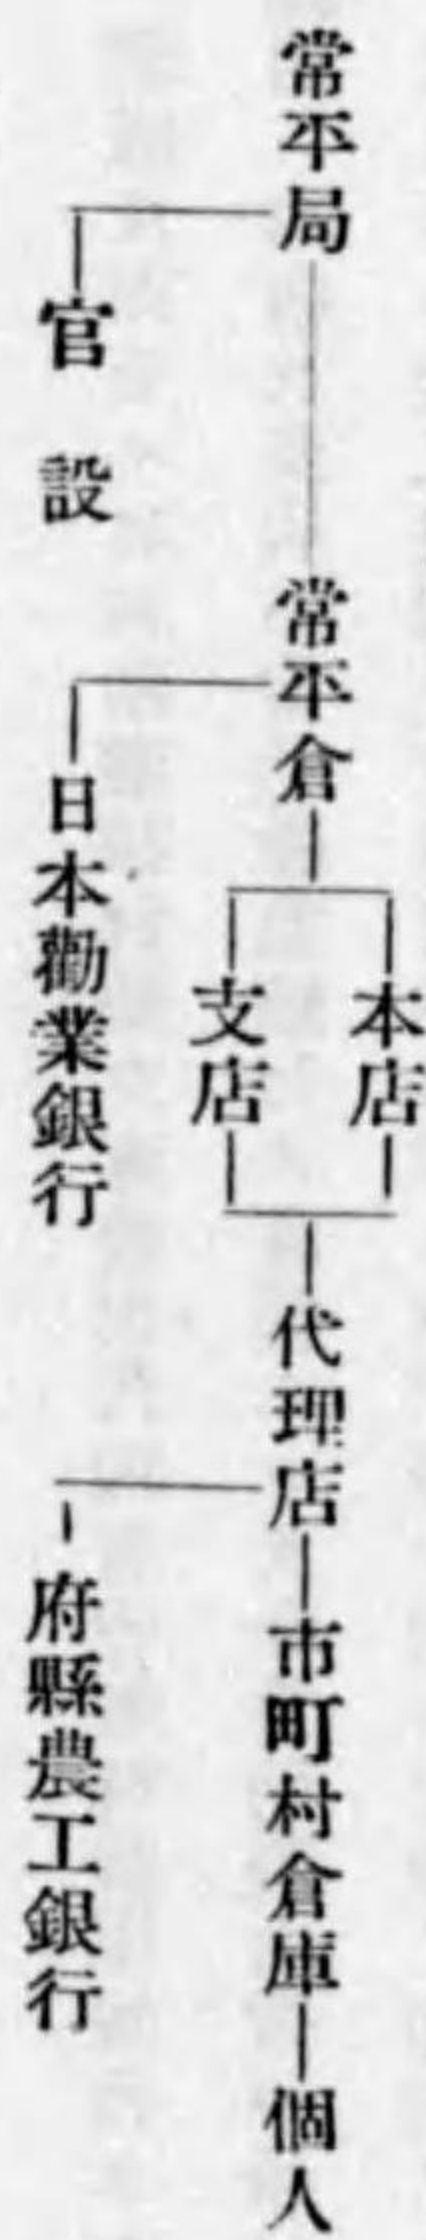 常平局
常平倉
本店
支店
代理店
市町村倉庫
個人
官設
日本勸業銀行
府縣農工銀行